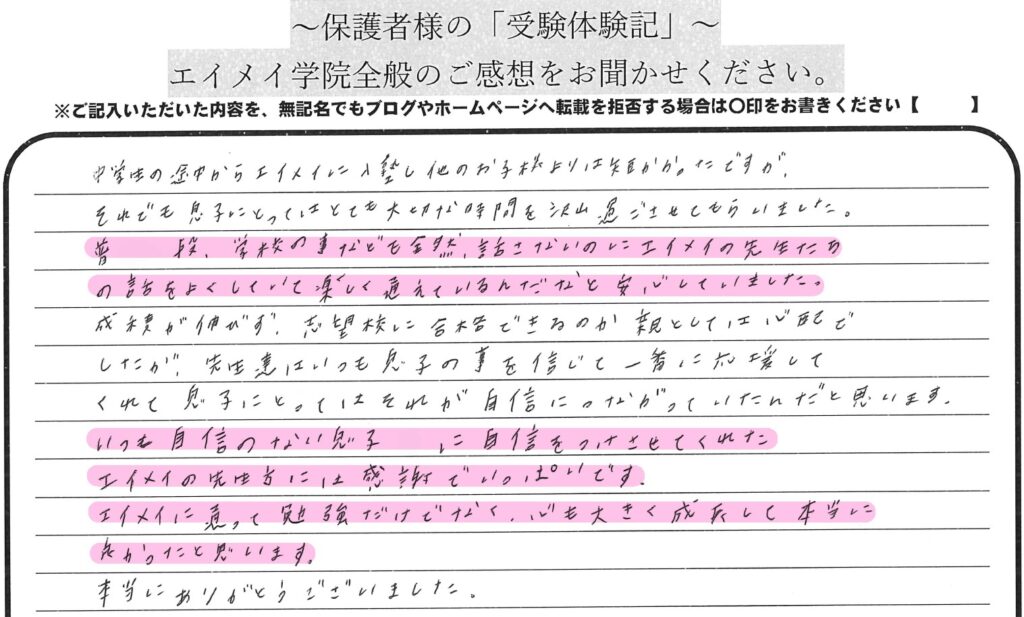 ～保護者様の「受験体験記」～
エイメイ学院全般のご感想をお聞かせください。
※ご記入いただいた内容を、無記名でもブログやホームページへ転載を拒否する場合は〇印をお書きください【　　　】
中学生の途中からエイメイに入塾し他のお子様よりは短かかったですが、
それでも息子にとってはとても大切な時間を沢山過ごさせてもらいました。
普段、学校の事なども全然、話さないのにエイメイの先生たち
の話をよくしていて楽しく通えているんだなと安心していました。
成積が伸びず、志望校に合格できるのか親としては心配で
したが、先生達はいつも息子の事を信じて一番に応援して
くれて息子にとってはそれが自信につながっていたんだと思います。
いつも自信のない息子　に自信をつけさせてくれた
エイメイの先生方には感謝でいっぱいです。
エイメイに通って勉強だけでなく、心も大きく成長して本当に
良かったと思います。
本当にありがとうございました。